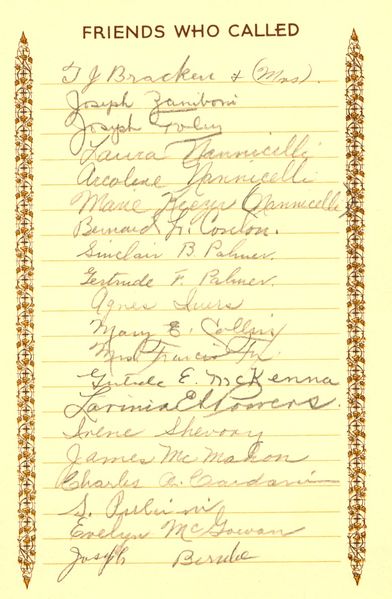 FRIENDS WHO CALLED
T J Bracken & (Mrs).
Joseph Zaniboni
Joseph Tolin
Laura Nannicelli
Arcolene Nannicelli
Marie Keezer (Nannicelli)
Bernard L. Conlon.
Sinclair B. Palmer.
Gertrude F. Palmer.
Agnes Ivers
Mary E. Collins
Mrs Francis
Gertrude E. McKenna
Lavinia E Powers.
Irene Shevory
James McMahon
Charles A.
S.
Evelyn McGowan
Joseph